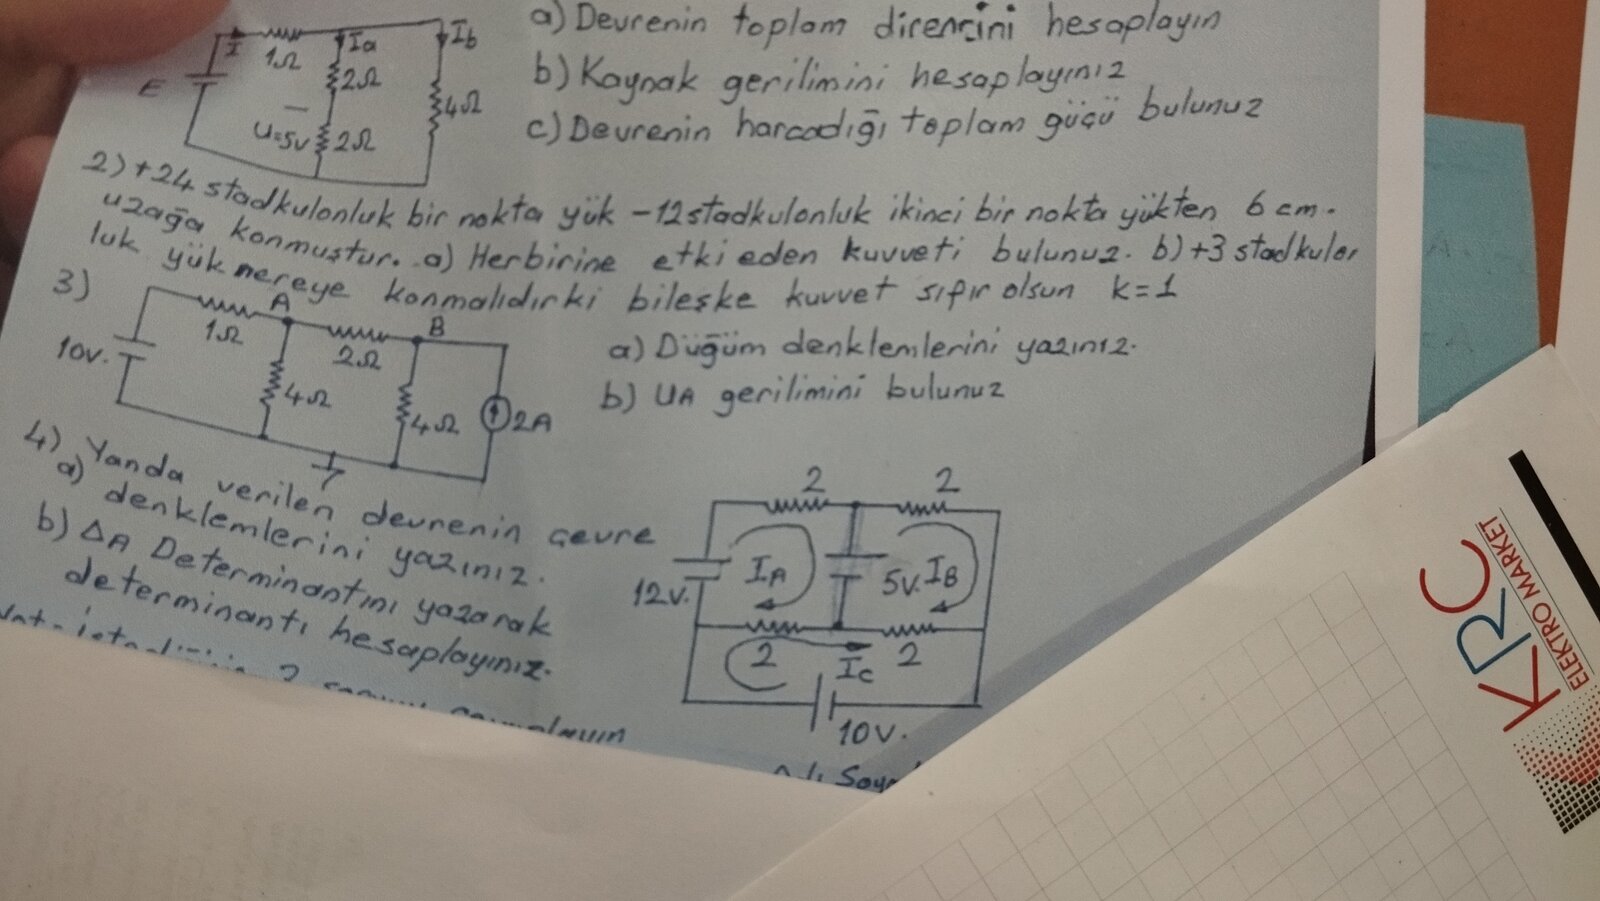 a) Devrenin toplam direncini hesaplayın
b) Kaynak gerilimini hesaplayınız
c) Devrenin harcadığı toplam güçü bulunuz
E
I
1Ω
Ia
Ib
2Ω
4Ω
U=5v
2Ω
2) +24 stadkulonluk bir nokta yük -12 stadkulonluk ikinci bir nokta yükten 6 cm.
uzağa konmuştur. a) Herbirine etki eden kuvveti bulunuz. b) +3 stadkulon
luk yük nereye konmalıdırki bileşke kuvvet sıfır olsun k=1
3)
10v.
1Ω
A
2Ω
B
4Ω
4Ω
2A
a) Düğüm denklemlerini yazınız.
b) UA gerilimini bulunuz
4) Yanda verilen devrenin çevre
a) denklemlerini yazınız.
b) ΔA Determinantını yazarak
determinantı hesaplayınız.
2
2
12v.
IA
5v.
IB
2
IC
2
10v.
KRC
ELEKTRO MARKET